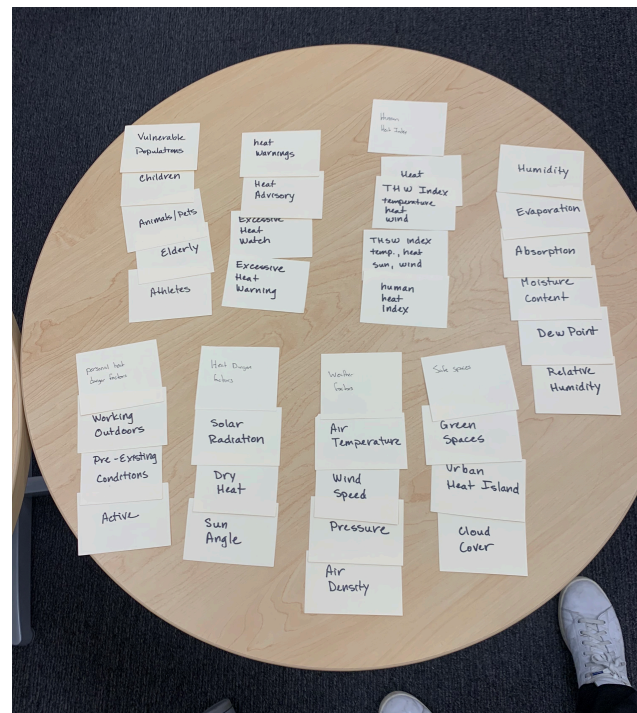 Vulnerable
Populations
Children
Animals/Pets
Elderly
Athletes
heat
warnings
Heat
Advisory
Excessive
Heat
Watch
Excessive
Heat
Warning
Human
Heat Index
Heat
THW Index
temperature
heat
wind
THSW index
temp., heat
sun, wind
human
heat
index
Humidity
Evaporation
Absorption
Moisture
Content
Dew Point
Relative
Humidity
personal heat
danger factors
Working
Outdoors
Pre-Existing
Conditions
Active
Heat Danger
factors
Solar
Radiation
Dry
Heat
Sun
Angle
Weather
factors
Air
Temperature
Wind
Speed
Pressure
Air
Density
Safe spaces
Green
Spaces
Urban
Heat Island
Cloud
Cover